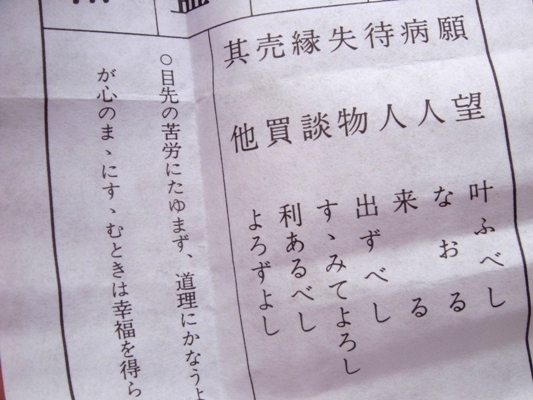 願望 叶ふべし
病人 なおる
待人 来る
失物 出ずべし
縁談 すゝみてよろし
売買 利あるべし
其他 よろずよし
○目先の苦労にたゆまず、道理にかなうよ
が心のまゝにすゝむときは幸福を得ら